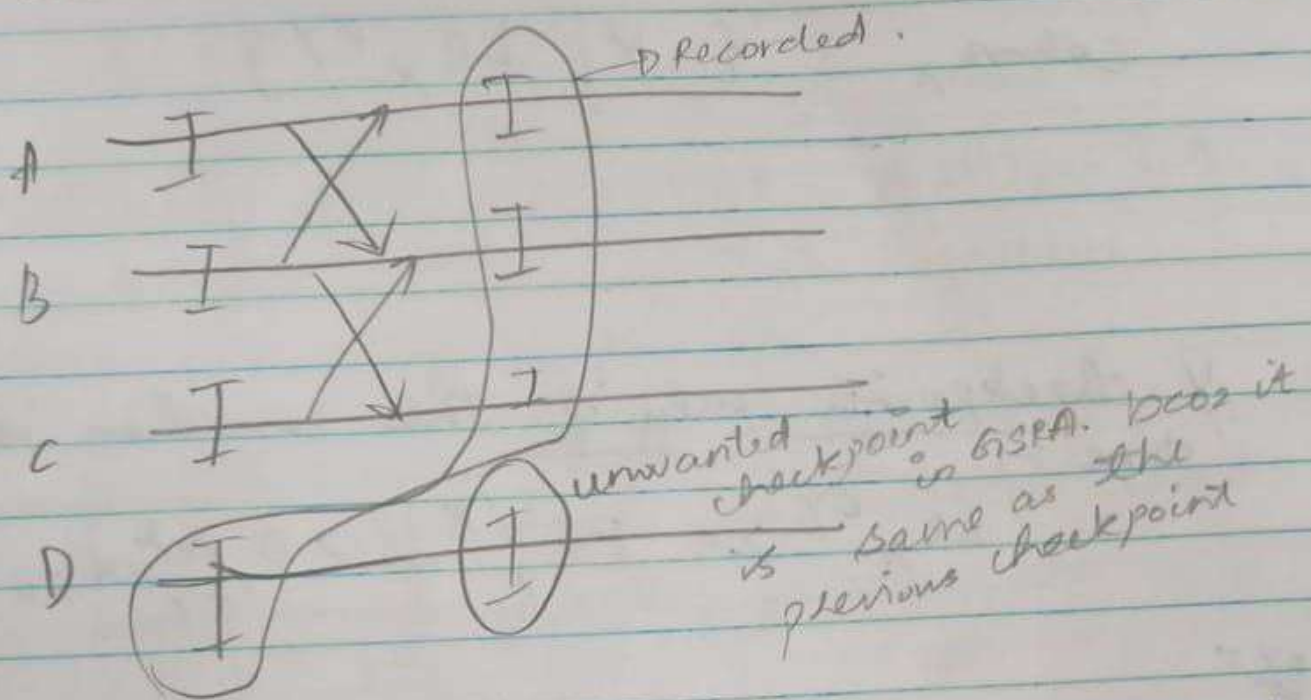 Recorded.
A
B
C
D
unwanted
checkpoint
in GSRA. bcoz it
is same as the
previous checkpoint